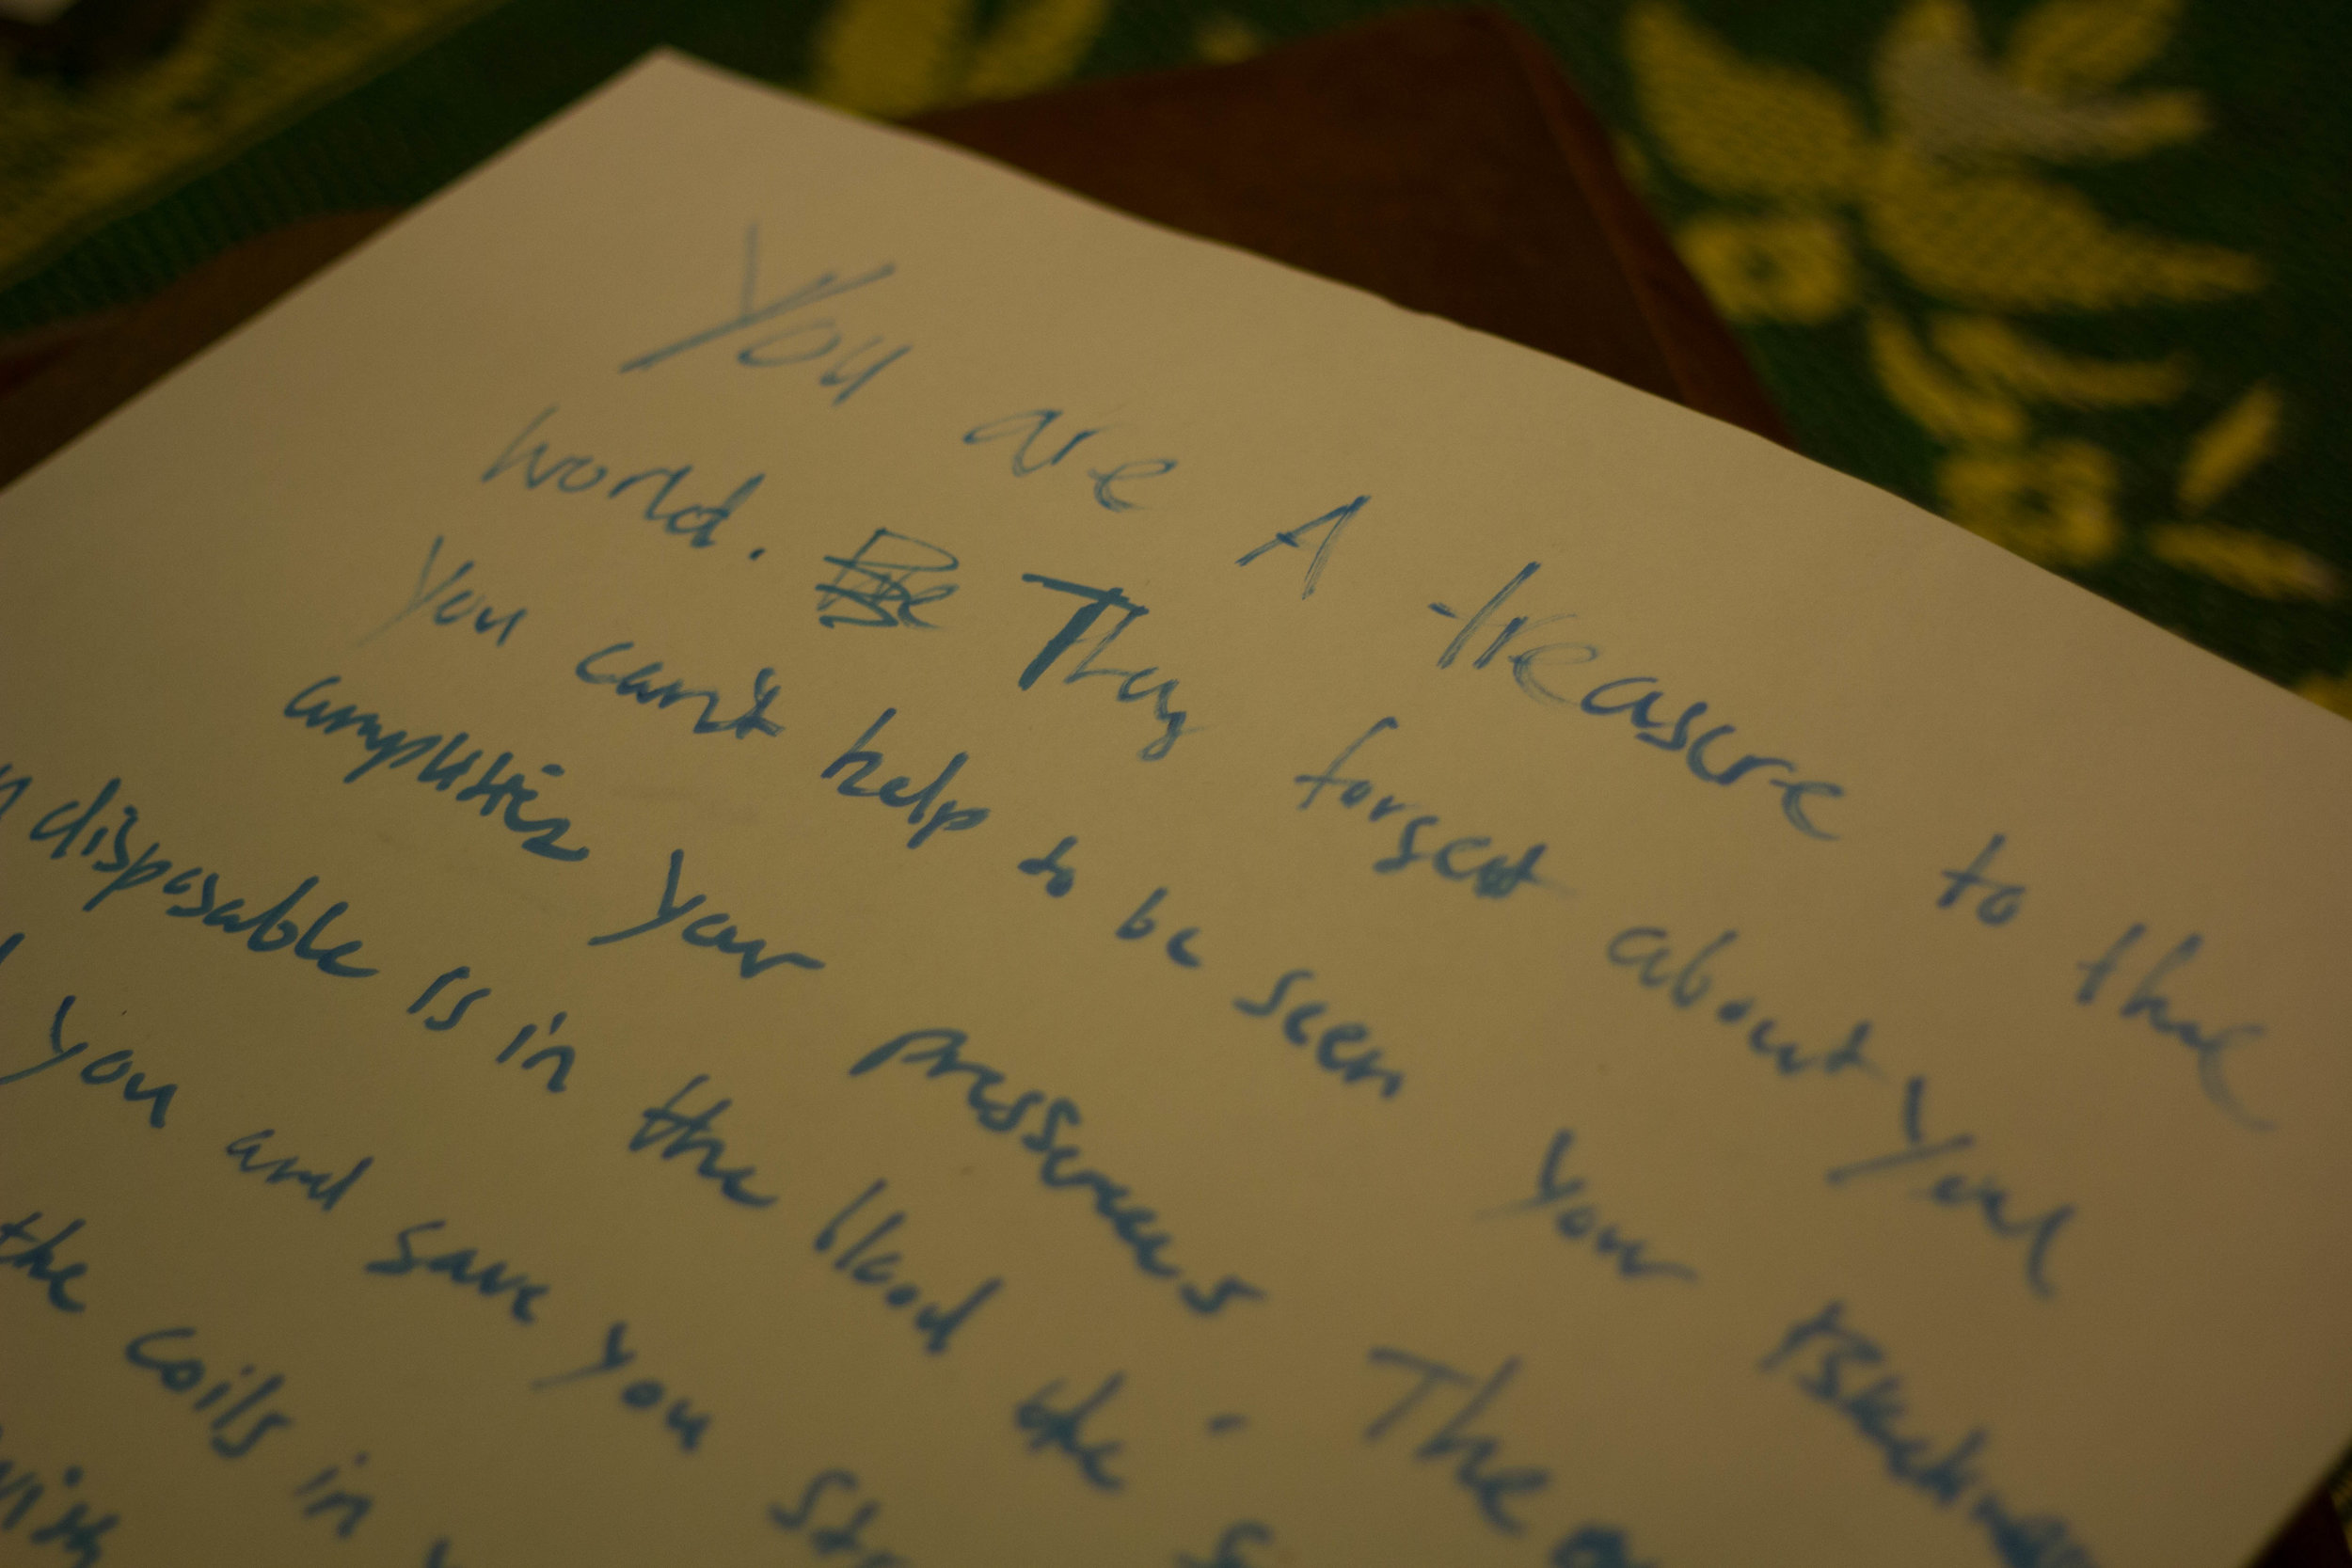 You are A treasure to the
world. They forget about you
You can't help to be seen your
your pressures The
disposable is in the blood the
you and save you
the coils in
with